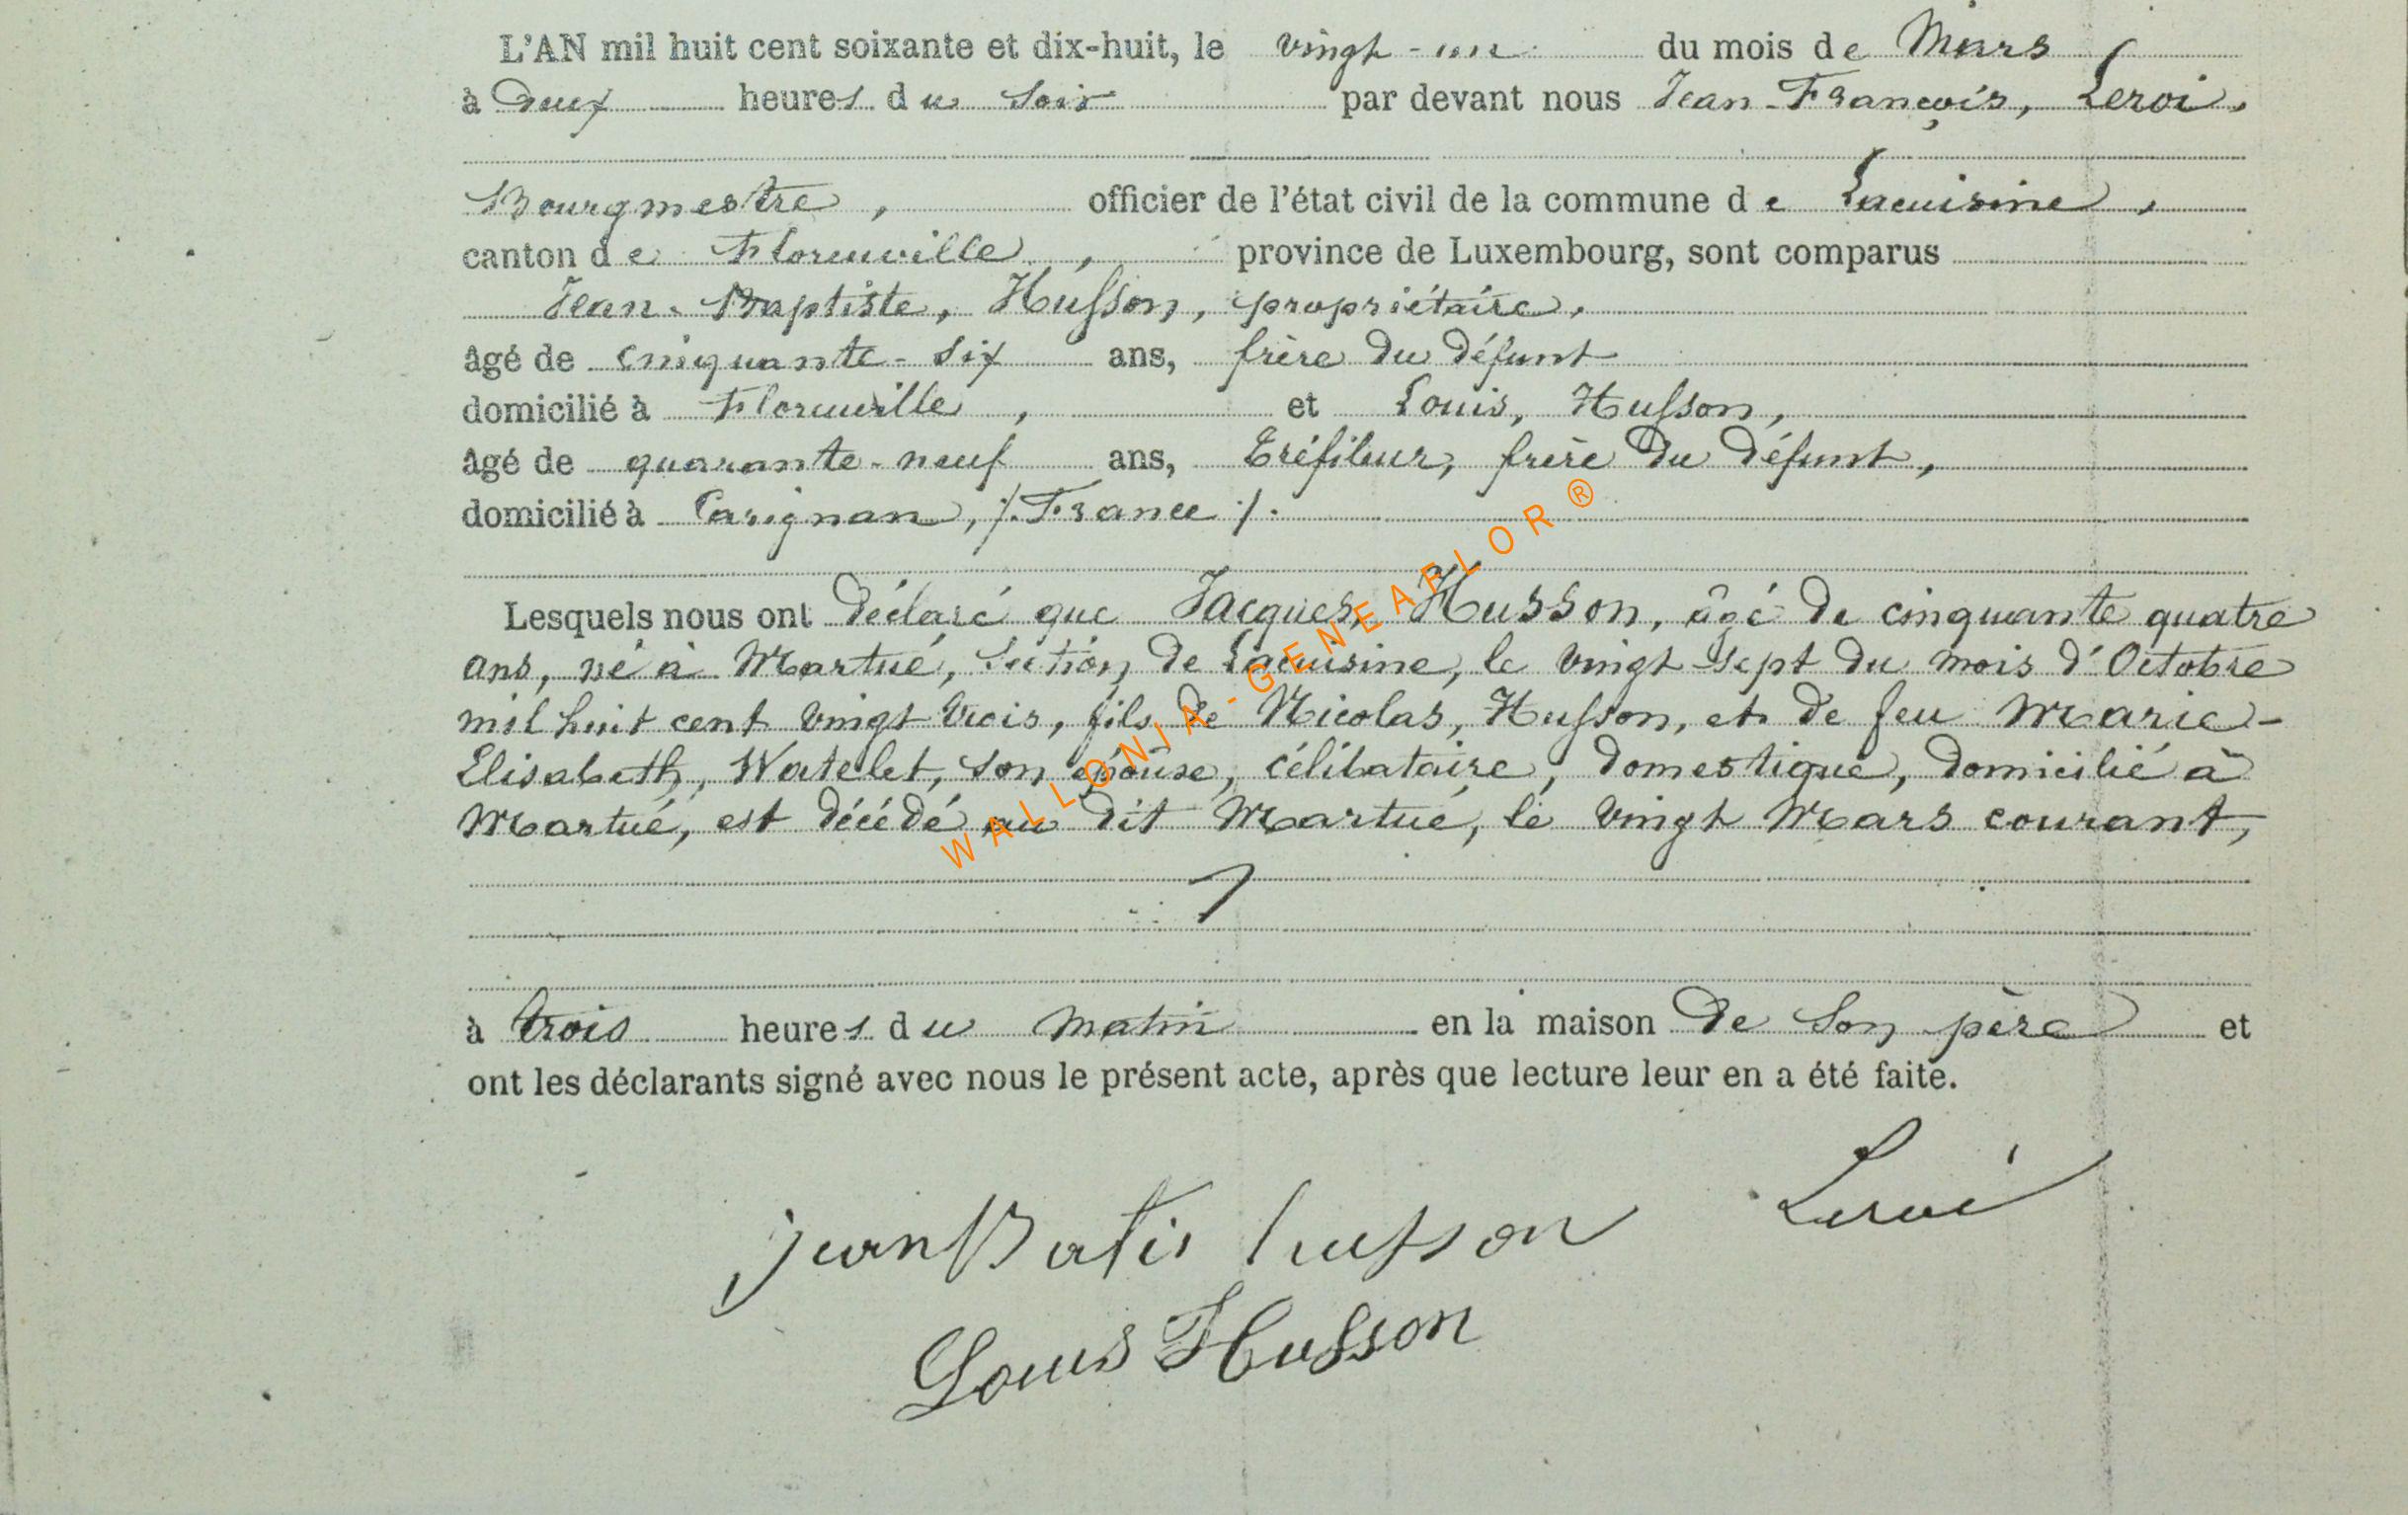 L'AN mil huit cent soixante et dix-huit, le vingt-un du mois de Mars
à Deux heures du soir par devant nous Jean-François, Leroi,
Bourgmestre, officier de l'état civil de la commune de Lacuisine,
canton de Florenville, province de Luxembourg, sont comparus
Jean-Baptiste, Husson, propriétaire,
âgé de cinquante-six ans, frère du défunt
domicilié à Florenville, et Louis, Husson,
âgé de quarante-neuf ans, tréfileur, frère du défunt,
domicilié à Carignan, /. France /.
Lesquels nous ont déclaré que Jacques, Husson, âgé de cinquante quatre
ans, né à Martué, section de Lacuisine, le vingt-sept du mois d'Octobre
mil huit cent vingt trois, fils de Nicolas, Husson, et de feu Marie-
Elisabeth, Watelet, son épouse, célibataire, domestique, domicilié à
Martué, est décédé au dit Martué, le vingt Mars courant,
à trois heures du matin en la maison de son père et
ont les déclarants signé avec nous le présent acte, après que lecture leur en a été faite.
Leroi
jean Batis husson
Louis Husson
WALLONIA-GENEARLOR®